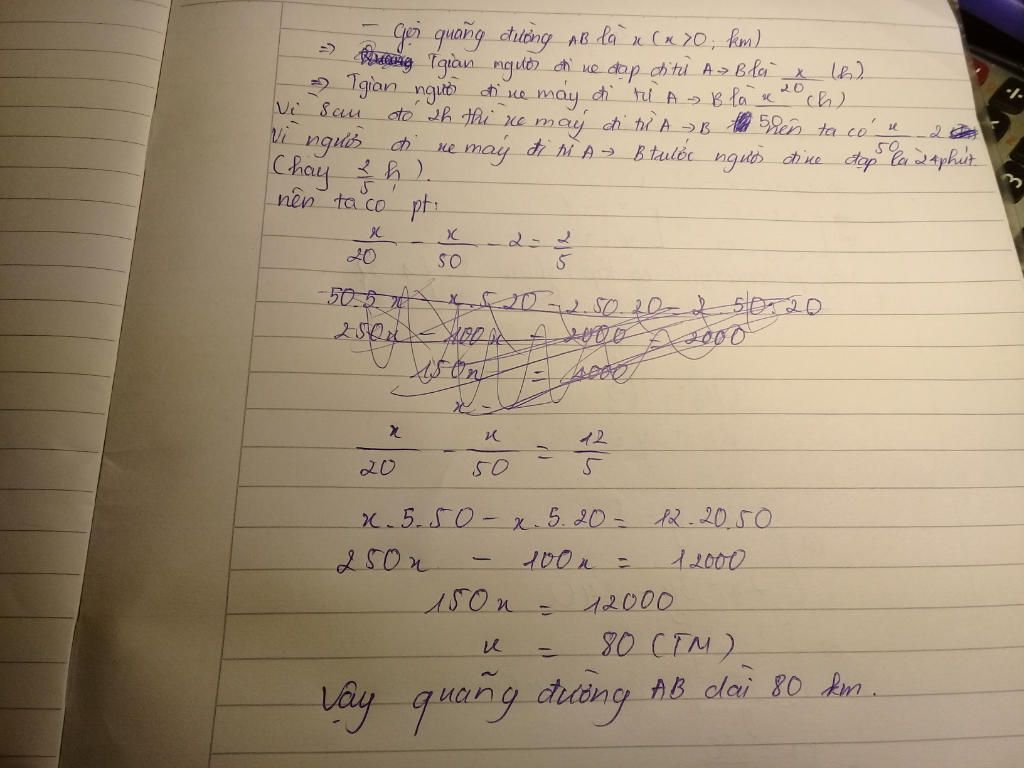 - Gọi quãng đường AB là x (x > 0; km)
=> Tgian người đi xe đạp đi từ A → B là x/20 (h)
=> Tgian người đi xe máy đi từ A → B là x/50 (h)
Vì sau đó 2h thì xe máy đi từ A → B nên ta có x/50 - 2
Vì người đi xe máy đi từ A → B trước người đi xe đạp là 24 phút
(hay 2/5 h).
nên ta có pt:
x/20 - x/50 - 2 = 2/5
50.5.x - x.5.20 - 2.50.20 = 2.50.20
250x - 100x - 2000 = 2000
150x = 4000
x =
x/20 - x/50 = 12/5
x.5.50 - x.5.20 = 12.20.50
250x - 100x = 12000
150x = 12000
x = 80 (TM)
Vậy quãng đường AB dài 80 km.